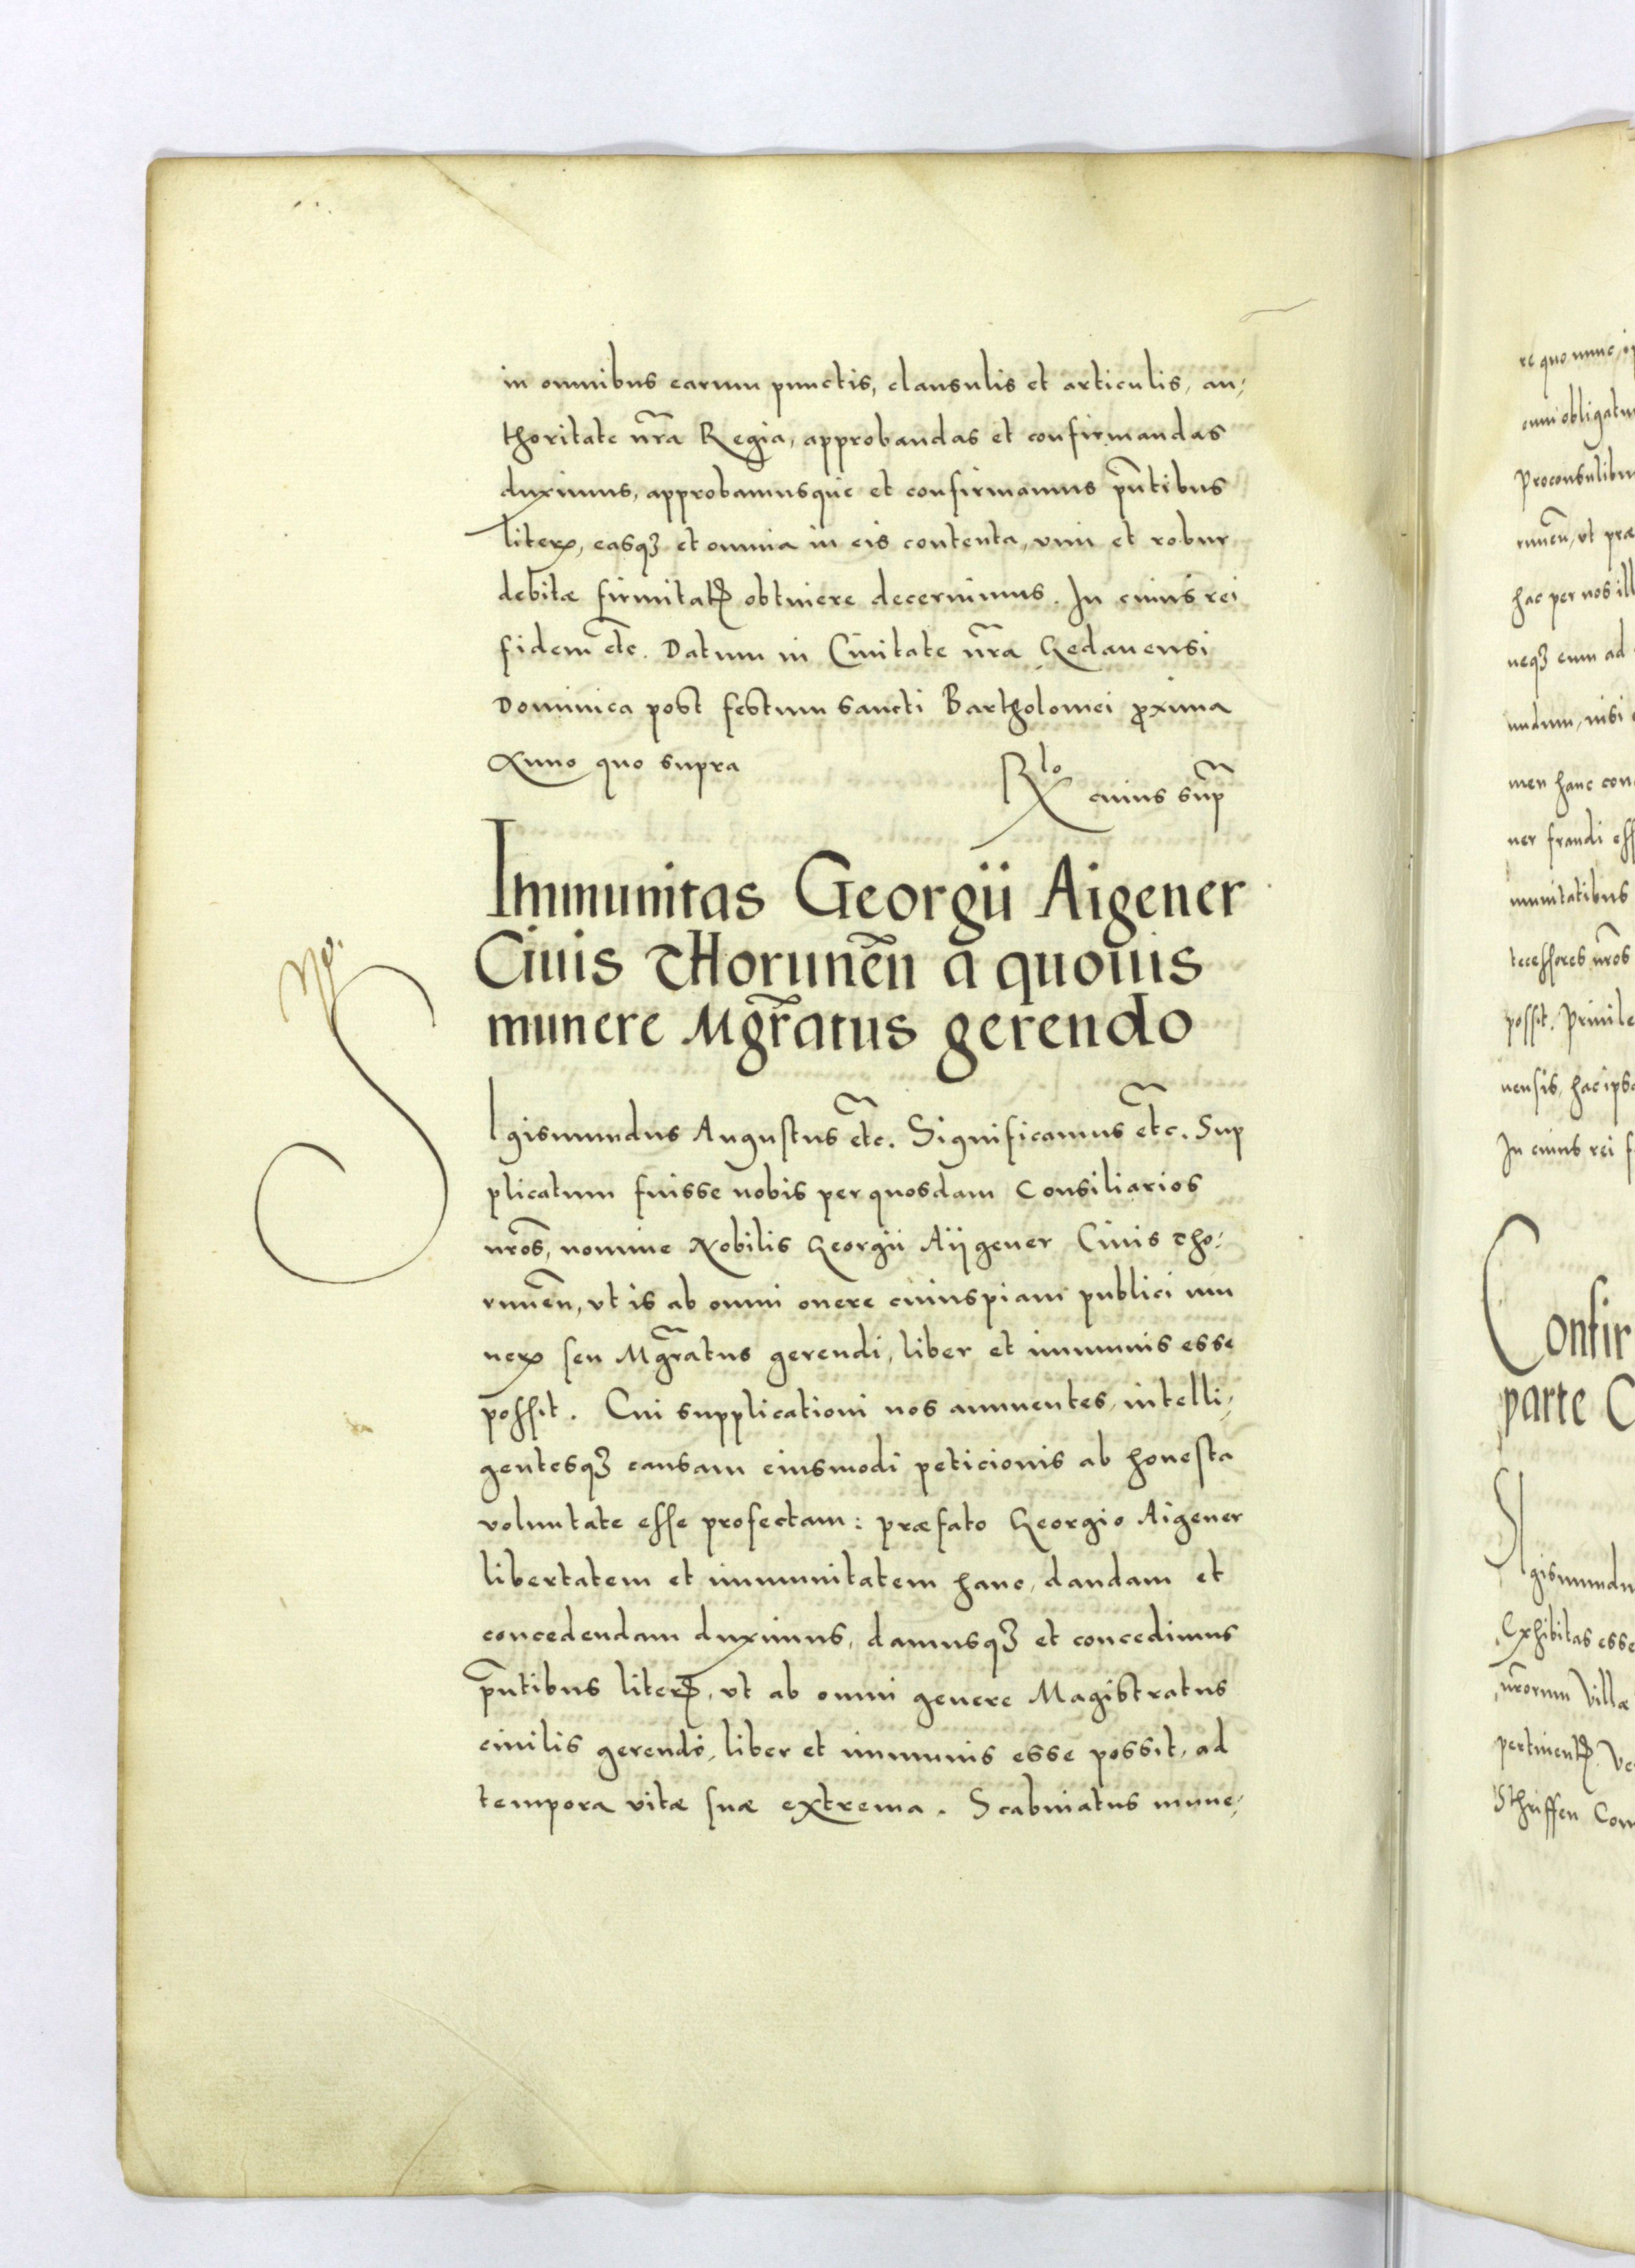 in omnibus earum punctis, clausulis et articulis, au-
thoritate nr̃a Regia, approbandas et confirmandas
duximus, approbamusque et confirmamus pñtibus
literꝭ, easqꝫ et omnia in eis contenta, vim et robur
debitæ firmitatꝭ obtinere decernimus. In cuius rei
fidem etc̃. Datum in Ciuitate nr̃a Gedanensi
Dominica post festum sancti Bartholomei ꝓxima
Anno quo supra
Rlo cuius sup̃
Immunitas Georgii Aigener
Ciuis Thorunẽn a quouis
munere Mgr̃atus gerendo
Sigismundus Augustus etc̃. Significamus etc̃. Sup
plicatum fuisse nobis per quosdam Consiliarios
nr̃os, nomine Nobilis Georgii Aijgener Ciuis Tho-
runẽn, vt is ab omni onere cuiuspiam publici mu
nerꝭ seu Mgr̃atus gerendi, liber et immunis esse
possit. Cui supplicationi nos annuentes, intelli-
gentesqꝫ causam eiusmodi peticionis ab honesta
voluntate esse profectam: præfato Georgio Aigener
libertatem et immunitatem hanc, dandam et
concedendam duximus, damusqꝫ et concedimus
pñtibus literꝭ, vt ab omni genere Magistratus
ciuilis gerendo, liber et immunis esse possit, ad
tempora vitæ suæ extrema. Scabinatus mune-
re quo nunc
cum
Proconsulibu
runẽn, vt præ
hac per nos ill
neqꝫ eum ad
undum, nisi
men hanc con
ner fraudi ess
munitatibus
tecessores nr̃os
possit. Priuile
nensis, hac ips
In cuius rei f
Confir
parte C
Sigismundu
Exhibitas esse
nr̃orum Villæ
pertinentꝭ. Ve
Com